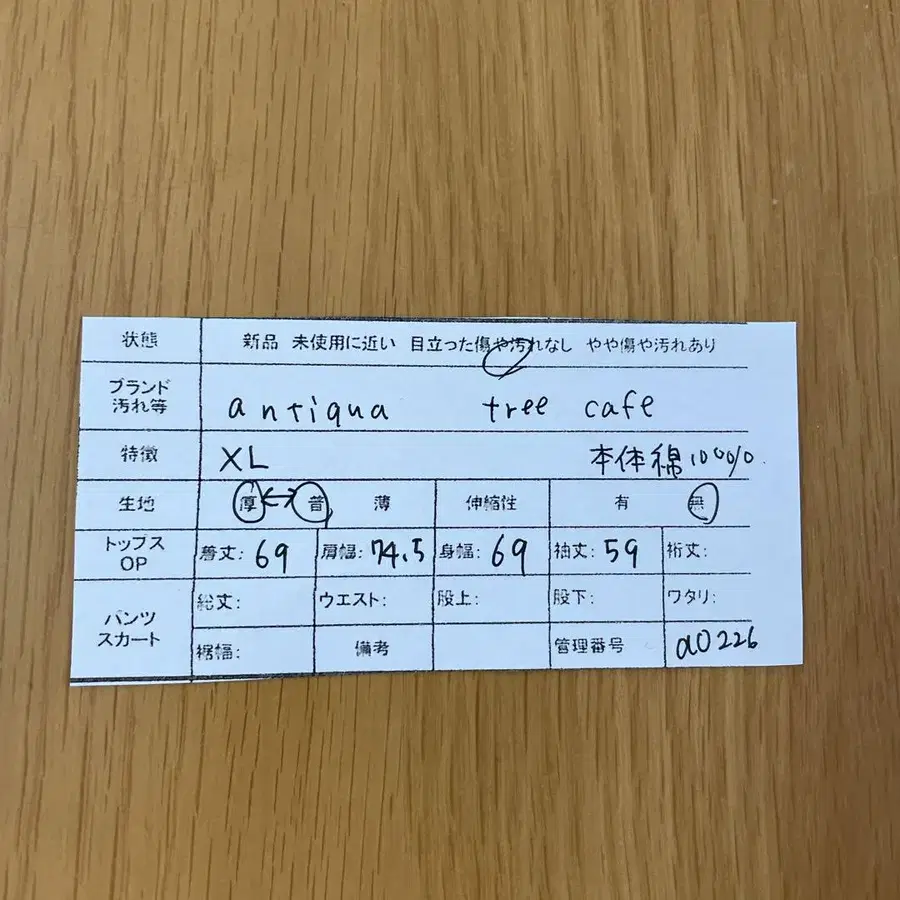 状態 新品 未使用に近い 目立った傷や汚れなし やや傷や汚れあり
ブランド
汚れ等 antiqua tree cafe
特徴 XL 本体綿100%
生地 厚 ↔ 普 薄 伸縮性 有 無
トップス
OP 着丈: 69 肩幅: 74.5 身幅: 69 袖丈: 59 裄丈:
パンツ
スカート 総丈: ウエスト: 股上: 股下: ワタリ:
裾幅: 備考 管理番号 a0226